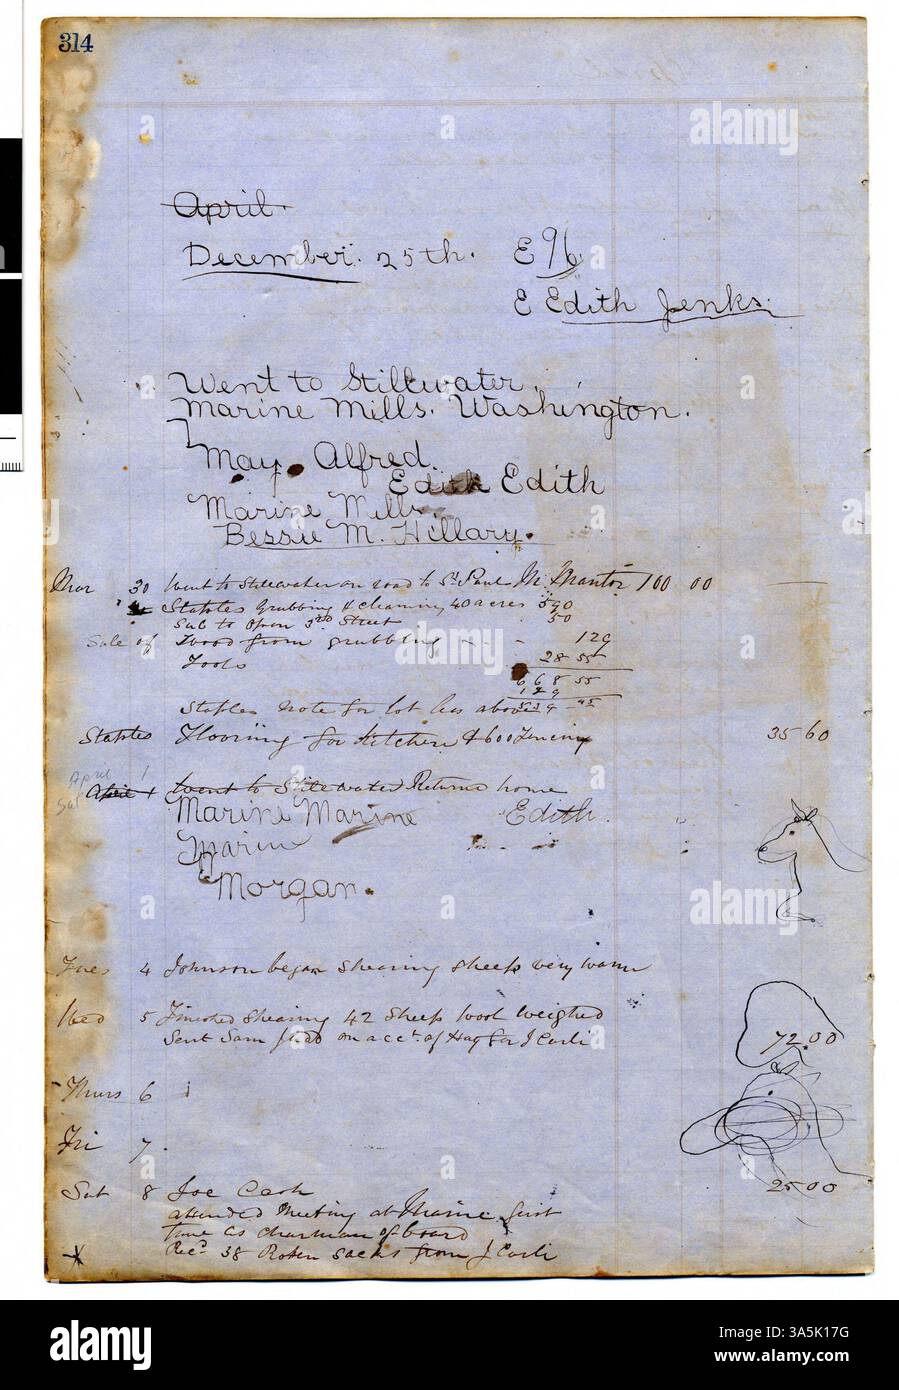 314
April.
December. 25th. E 96.
E Edith Jenks.
Went to Stillwater.
Marine Mills. Washington.
May. Alfred.
Edith Edith
Marine Mills.
Bessie M. Hillary.
Mar 30 Went to Stillwater on road to St Paul M. Mantor 100 00
Staples Grubbing & cleaning 40 acres 590
Sub to Open 3rd Street 50
Sale of Wood from grubbing - - 129
Tools 28 55
668 55
129
Staples note for lot less above 539 45
Staples Flooring for Kitchen & 600 Fencing 35 60
April 1
Sat April 1 Went to Stillwater Returns home
Marine Marine Edith.
Marin
Morgan.
Tues 4 Johnson began shearing sheep very warm
Wed 5 Finished Shearing 42 Sheep wool weighed
Sent Sam on acct. of Hay for J Carli 72.00
Thurs 6
Fri 7
Sat 8 Joe Cash 25 00
attended Meeting at Marine first
time as chairman of board
Recd 38 sacks from J Carli
alamy
alamy
Image ID: 3A5K17G
www.alamy.com